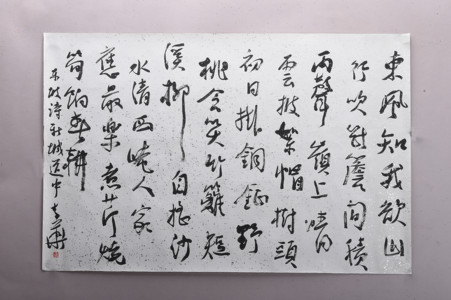 東風知我欲山
行吹斷簷間積
雨聲嶺上晴
雲披絮帽樹頭
初日掛銅鉦野
桃含笑竹籬短
溪柳自搖沙
水清西崦人家
應最樂煮芹燒
筍餉春耕
東坡詩新城道中